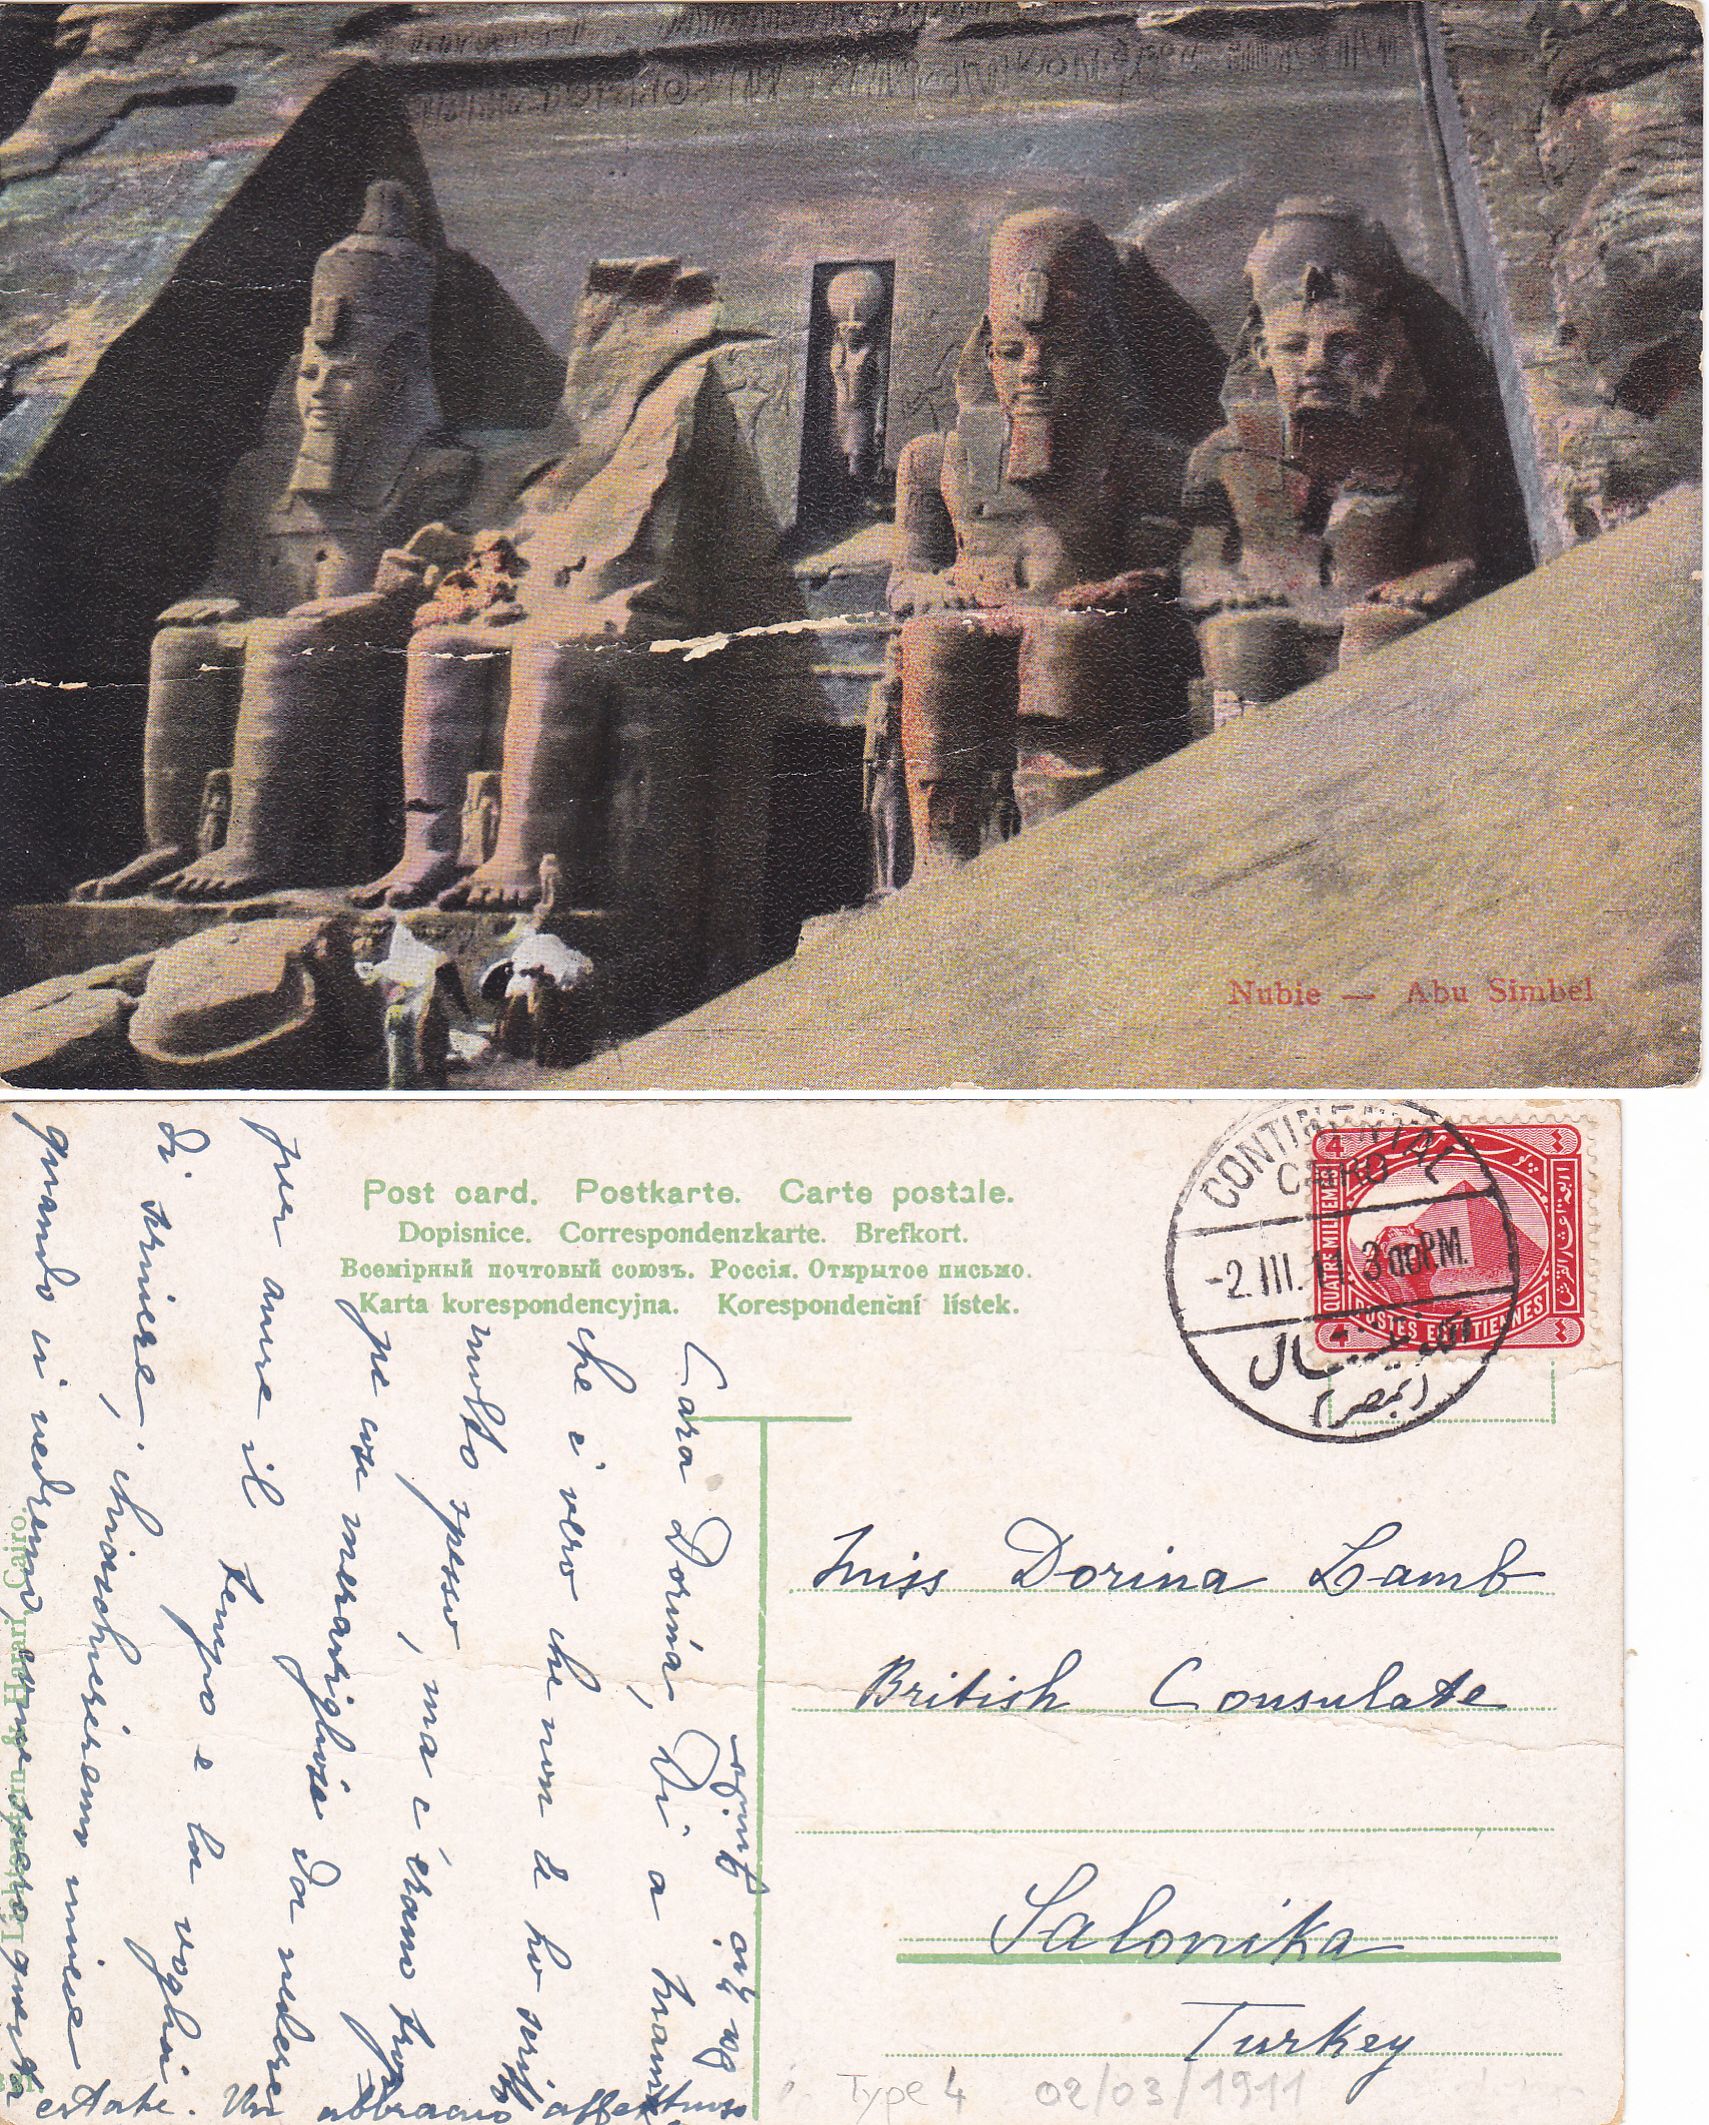 Nubie — Abu Simbel
Post card. Postkarte. Carte postale.
Dopisnice. Correspondenzkarte. Brefkort.
Всемірный почтовый союзъ. Россія. Открытое письмо.
Karta korespondencyjna. Korespondenční lístek.
CONTINENTAL
CAIRO
-2.III.11 3 00 P.M.
4 4
QUATRE MILLIEMES
POSTES EGYPTIENNES
4 4
Miss Dorina Lamb
British Consulate
Salonika
Turkey
Cara Dorina, Di a
che è vero che non te ho scritto
molto spesso, ma c'éramo
pe cose meravigliose da vedere
per avere il tempo e la voglia
di scrivere, chiacchiereremo
quando ci vedremo, come spero questa
estate. Un abbraccio affettuoso
Lichtenstern & Harari, Cairo.
Type 4 02/03/1911